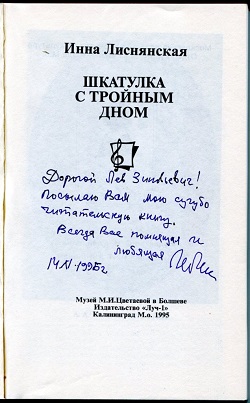 Инна Лиснянская
ШКАТУЛКА
С ТРОЙНЫМ
ДНОМ
Дорогой Лев Зиновьевич!
Посылаю Вам мою сугубо
читательскую книгу.
Всегда Вас помнящая и
любящая
1995 г
Музей М.И.Цветаевой в Болшеве
Издательство «Луч-1»
Калининград М.о. 1995